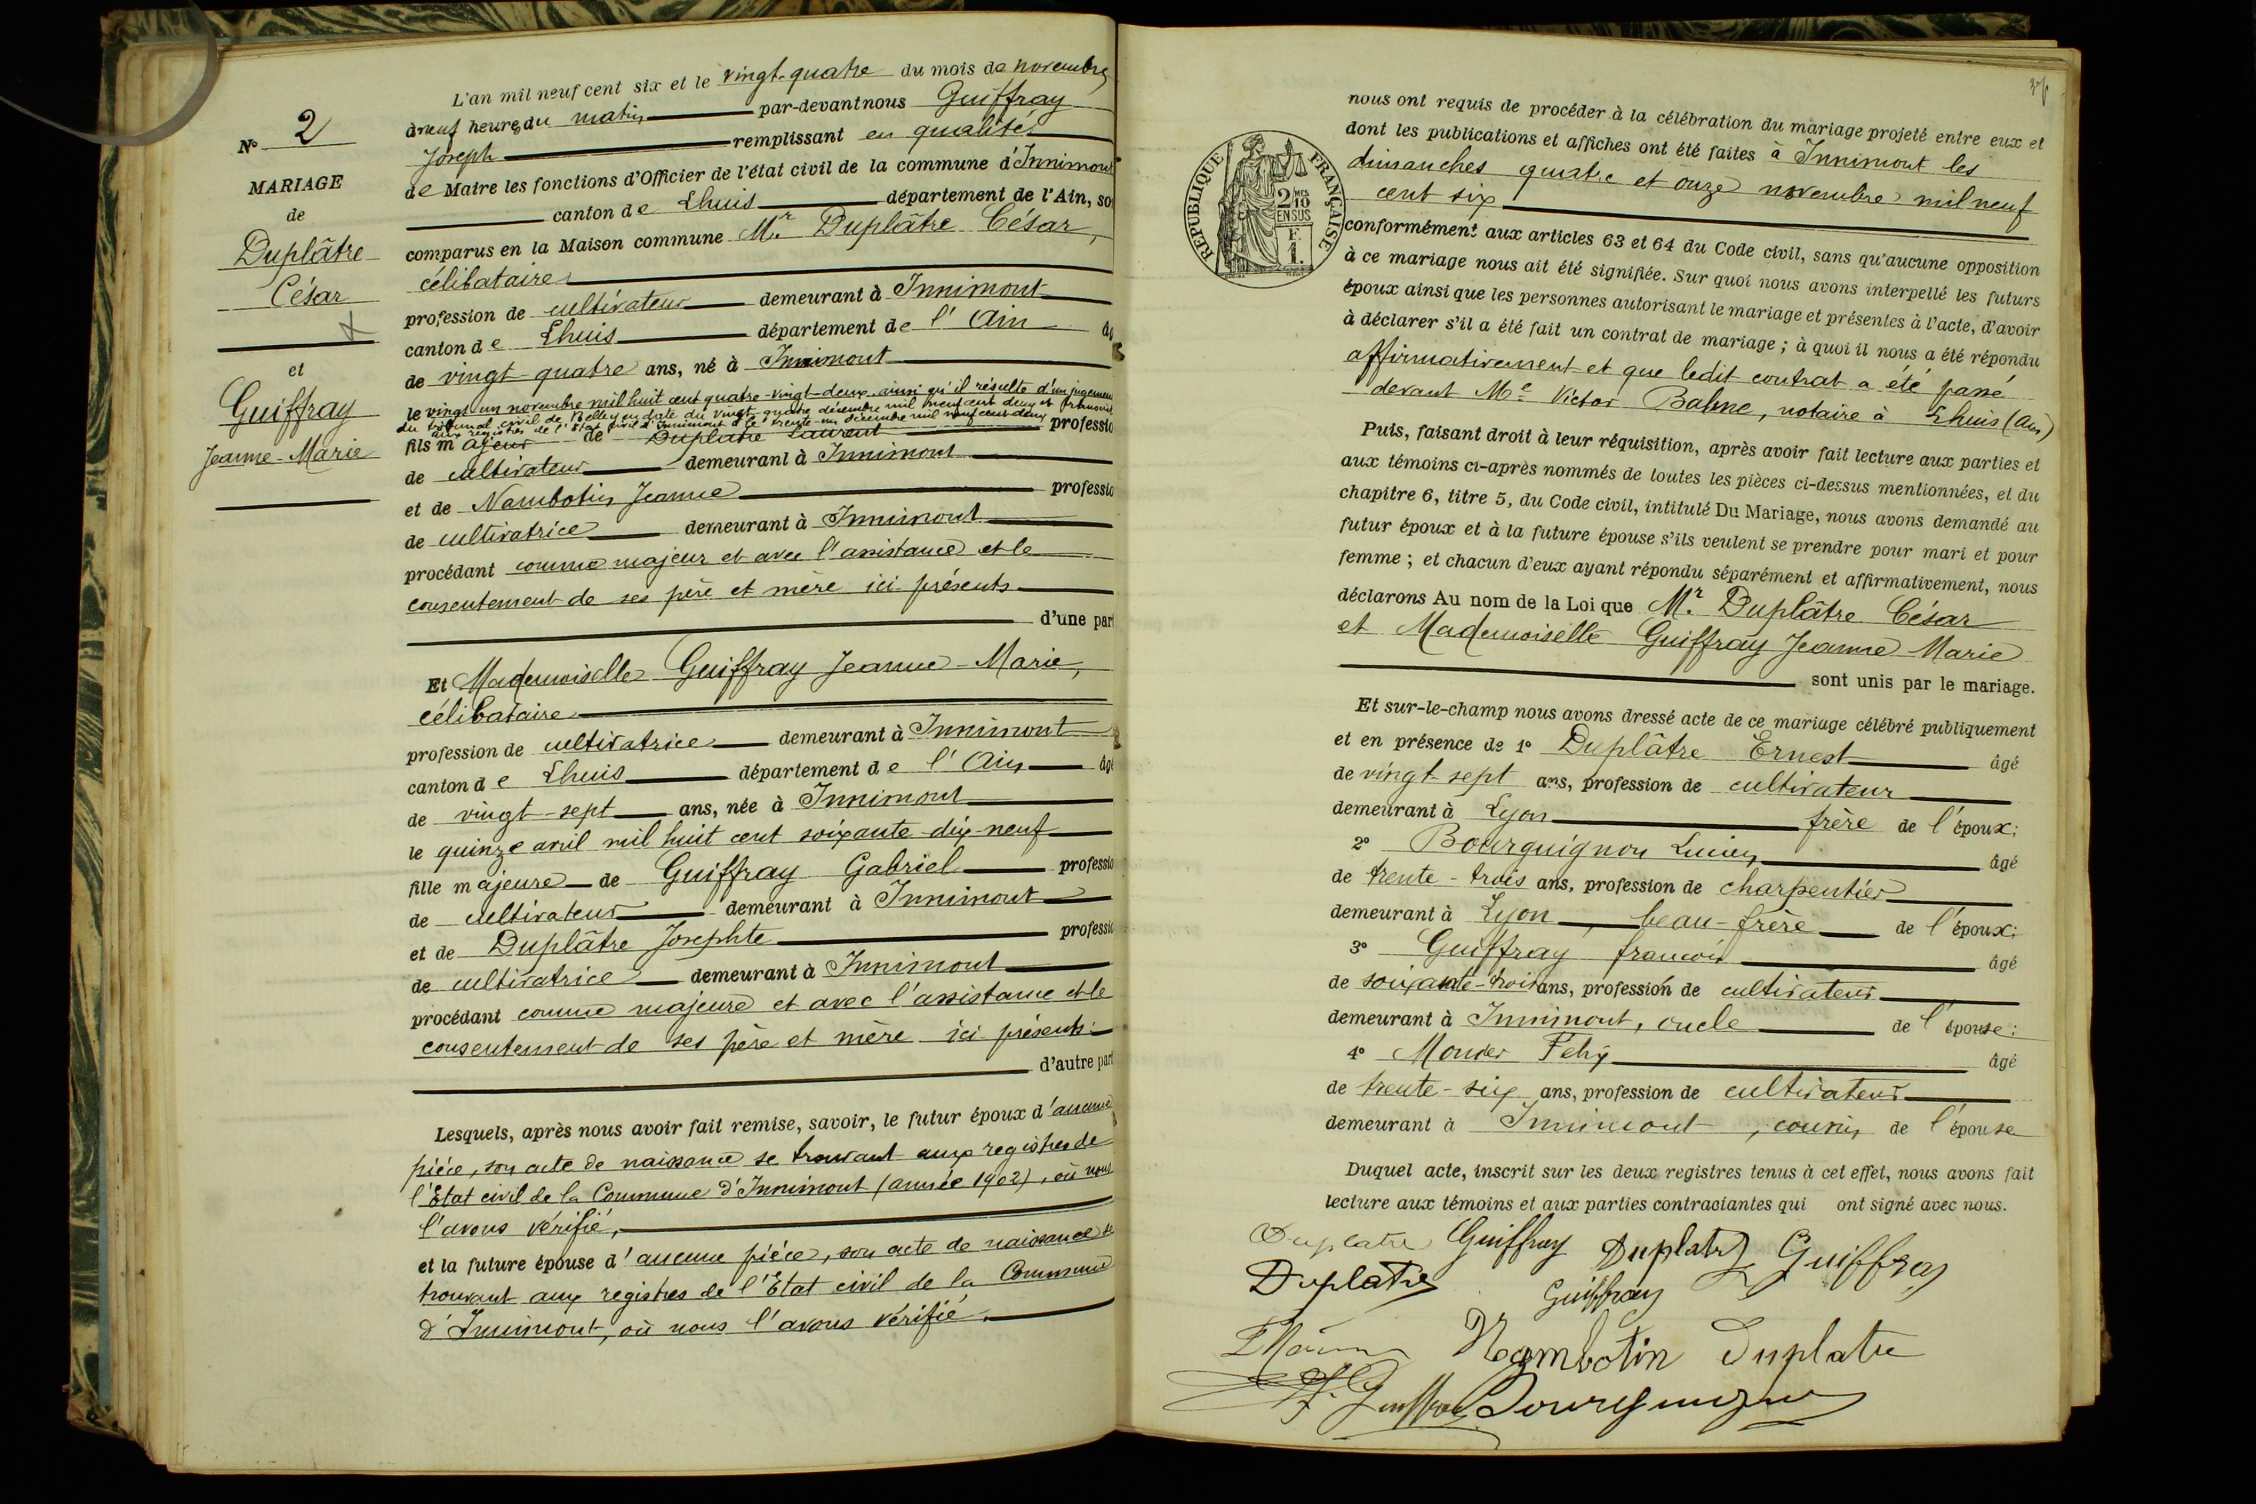 L'an mil neuf cent six et le vingt-quatre du mois de novembre
à neuf heures du matin par-devant nous Guiffray
Joseph remplissant en qualité
de Maire les fonctions d'Officier de l'état civil de la commune d'Innimont
canton de Lhuis département de l'Ain, so
comparus en la Maison commune Mr. Duplâtre César,
célibataire
profession de cultivateur demeurant à Innimont
canton de Lhuis département de l'Ain âg
de vingt-quatre ans, né à Innimont
le vingt un novembre mil huit cent quatre-vingt-deux ainsi qu'il résulte d'un jugement
du tribunal civil de Belley en date du vingt-quatre décembre mil neuf cent deux et transcrit
aux registres de l'Etat civil d'Innimont le trente-un décembre mil neuf cent deux
fils majeur de Duplâtre Laurent professio
de cultivateur demeurant à Innimont
et de Nambotin Jeanne professio
de cultivatrice demeurant à Innimont
procédant comme majeur et avec l'assistance et le
consentement de ses père et mère ici présents
d'une part
N° 2
MARIAGE
de
Duplâtre
César
et
Guiffray
Jeanne-Marie
Et Mademoiselle Guiffray Jeanne-Marie,
célibataire
profession de cultivatrice demeurant à Innimont
canton de Lhuis département de l'Ain âgé
de vingt-sept ans, née à Innimont
le quinze avril mil huit cent soixante-dix-neuf
fille majeure de Guiffray Gabriel professio
de cultivateur demeurant à Innimont
et de Duplâtre Josephte professio
de cultivatrice demeurant à Innimont
procédant comme majeure et avec l'assistance et le
consentement de ses père et mère ici présents
d'autre part
Lesquels, après nous avoir fait remise, savoir, le futur époux d'aucune
pièce, son acte de naissance se trouvant aux registres de
l'Etat civil de la Commune d'Innimont (année 1902), où nous
l'avons vérifié,
et la future épouse d'aucune pièce, son acte de naissance se
trouvant aux registres de l'Etat civil de la Commune
d'Innimont, où nous l'avons vérifié.
RÉPUBLIQUE FRANÇAISE
2 MES
10
EN SUS
F.
1.
nous ont requis de procéder à la célébration du mariage projeté entre eux et
dont les publications et affiches ont été faites à Innimont les
dimanches quatre et onze novembre mil neuf
cent six
conformément aux articles 63 et 64 du Code civil, sans qu'aucune opposition
à ce mariage nous ait été signifiée. Sur quoi nous avons interpellé les futurs
époux ainsi que les personnes autorisant le mariage et présentes à l'acte, d'avoir
à déclarer s'il a été fait un contrat de mariage ; à quoi il nous a été répondu
affirmativement et que ledit contrat a été passé
devant Me Victor Balme, notaire à Lhuis (Ain)
Puis, faisant droit à leur réquisition, après avoir fait lecture aux parties et
aux témoins ci-après nommés de toutes les pièces ci-dessus mentionnées, et du
chapitre 6, titre 5, du Code civil, intitulé Du Mariage, nous avons demandé au
futur époux et à la future épouse s'ils veulent se prendre pour mari et pour
femme ; et chacun d'eux ayant répondu séparément et affirmativement, nous
déclarons Au nom de la Loi que Mr. Duplâtre César
et Mademoiselle Guiffray Jeanne-Marie
sont unis par le mariage.
Et sur-le-champ nous avons dressé acte de ce mariage célébré publiquement
et en présence de 1° Duplâtre Ernest âgé
de vingt-sept ans, profession de cultivateur
demeurant à Lyon frère de l'époux;
2° Bourguignon Lucien âgé
de trente-trois ans, profession de charpentier
demeurant à Lyon, beau-frère de l'époux;
3° Guiffray francois âgé
de soixante-trois ans, profession de cultivateur
demeurant à Innimont, oncle de l'épouse;
4° Monier Felix âgé
de trente-six ans, profession de cultivateur
demeurant à Innimont, cousin de l'épouse
Duquel acte, inscrit sur les deux registres tenus à cet effet, nous avons fait
lecture aux témoins et aux parties contractantes qui ont signé avec nous.
Duplatre Guiffray Duplatre Guiffray
Duplatre Guiffray
Nambotin Duplatre
F. Guiffray Bourguignon